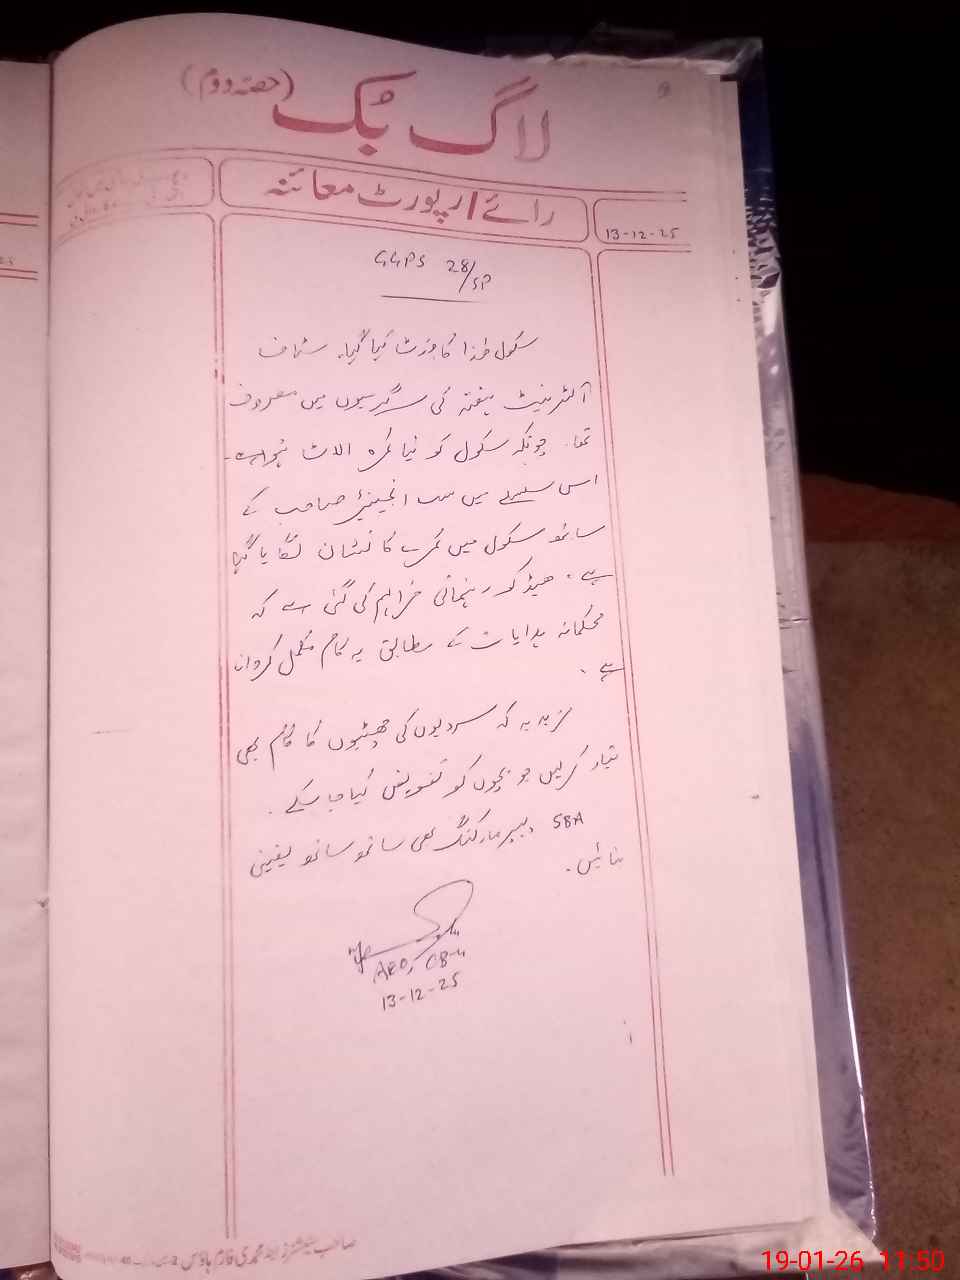 لاگ بُک (حصّہ دوم)
رائے / رپورٹ معائنہ
13-12-25
GGPS 28/SP
سکول ھٰذا کا وزٹ کیا گیا۔ سٹاف
آلٹرنیٹ ہفتہ کی سرگرمیوں میں مصروف
تھا۔ چونکہ سکول کو نیا کمرہ الاٹ ہوا ہے۔
اس سلسلے میں سب انجینئر صاحب کے
ساتھ سکول میں کمرے کا نشان لگایا گیا
ہے۔ ہیڈ کو رہنمائی فراہم کی گئی ہے کہ
محکمانہ ہدایات کے مطابق یہ کام مکمل کروانا
ہے۔
مزید یہ کہ سردیوں کی چھٹیوں کا کام بھی
تیار کریں جو بچوں کو تفویض کیا جا سکے۔
SBA پیپر مارکنگ بھی ساتھ ساتھ یقینی
بنائیں۔
AEO, CB-4
13-12-25
19-01-26 11:50